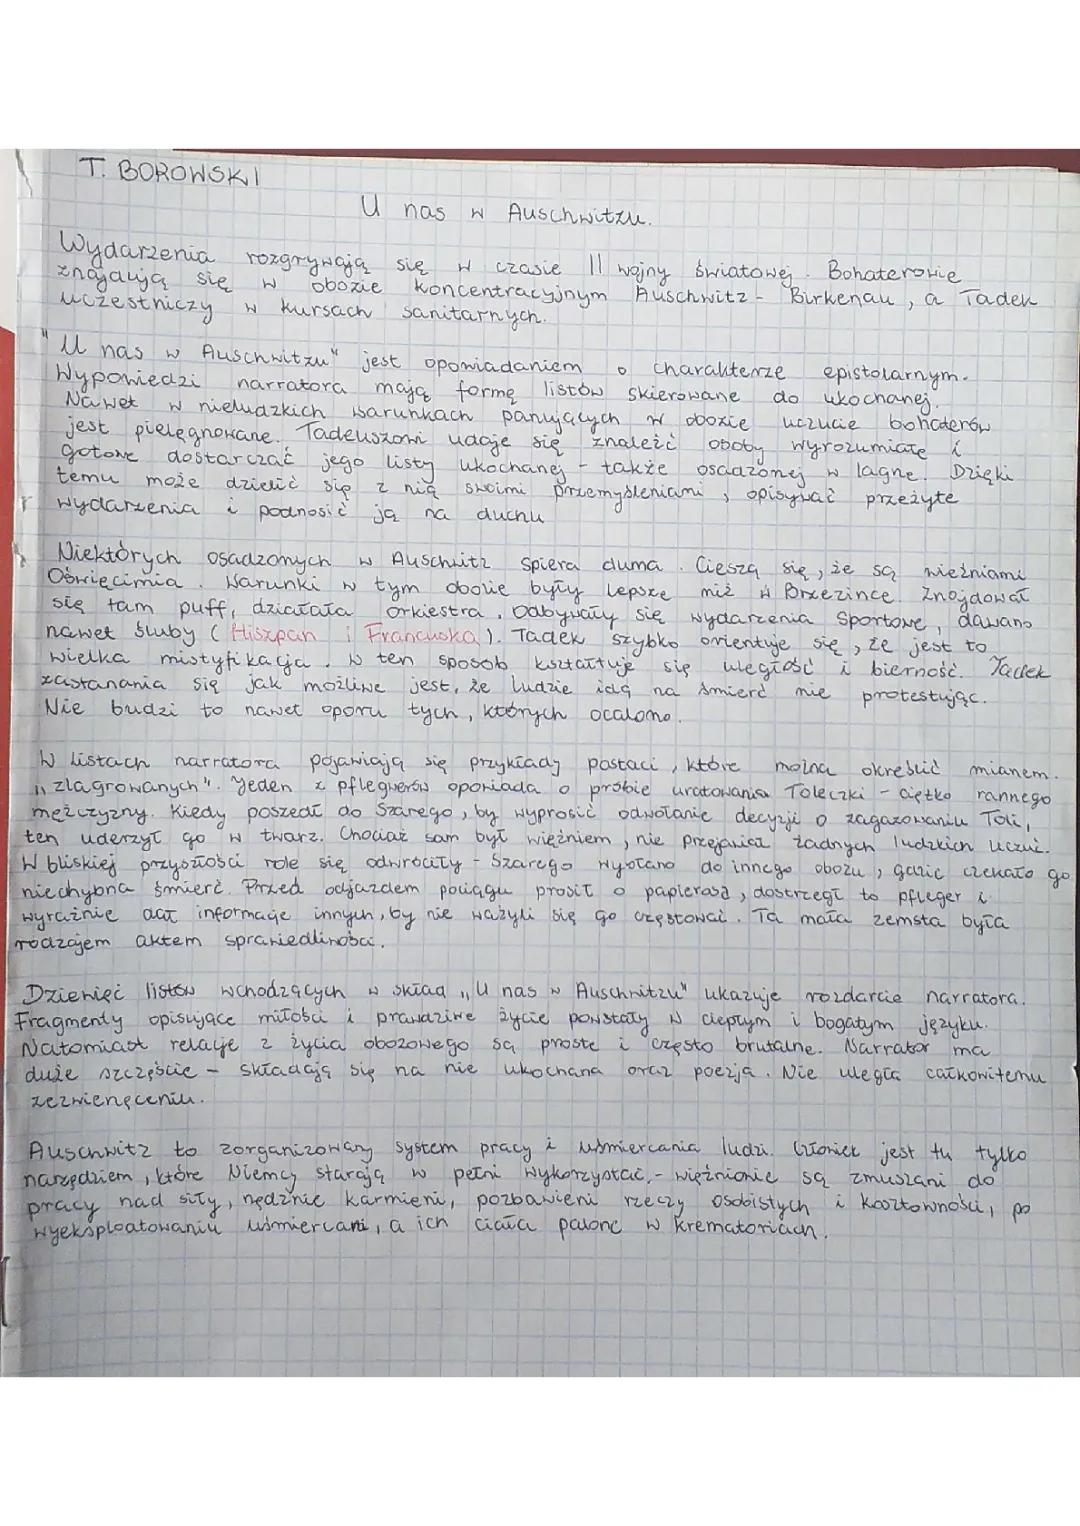 T. BOROWSKI
U nas w Auschwitzu.
Wydarzenia rozgrywają się w czasie II wojny światowej. Bohaterowie
znajdują się w obozie koncentracyjnym Auschwitz - Birkenau, a Tadek
uczestniczy w kursach sanitarnych.
"U nas w Auschwitzu" jest opowiadaniem o charakterze epistolarnym.
Wypowiedzi narratora mają formę listów skierowane do ukochanej.
Nawet w nieludzkich warunkach panujących w obozie uczucie bohaterów
jest pielęgnowane. Tadeuszowi udaje się znaleźć osoby wyrozumiałe i
gotowe dostarczać jego listy ukochanej - także osadzonej w lagrze. Dzięki
temu może dzielić się z nią swoimi przemyśleniami, opisywać przeżyte
wydarzenia i podnosić ją na duchu
Niektórych osadzonych w Auschwitz spiera duma. Cieszą się, że są więźniami
Oświęcimia. Warunki w tym obozie były lepsze niż w Brzezince. Znajdował
się tam puff, działała orkiestra. Odbywały się wydarzenia sportowe, dawano
nawet śluby (Hiszpan i Francuska). Tadek szybko orientuje się, że jest to
wielka mistyfikacja. W ten sposób kształtuje się uległość i bierność. Tadek
zastanania się jak możliwe jest, że ludzie idą na śmierć nie protestując.
Nie budzi to nawet oporu tych, których ocalono.
W listach narratora pojawiają się przykłady postaci, które można określić mianem.
"zlagrowanych". Jeden z pflegerów opowiada o próbie uratowania Toleczki - ciężko rannego
mężczyzny. Kiedy poszedł do Szarego, by wyprosić odwołanie decyzji o zagazowaniu Toli,
ten uderzył go w twarz. Chociaż sam był więźniem, nie przejawiał żadnych ludzkich uczuć.
W bliskiej przyszłości role się odwróciły - Szarego wysłano do innego obozu, gdzie czekało go
niechybna śmierć. Przed odjazdem pociągu prosił o papierosa, dostrzegł to pfleger i
wyraźnie dał informację innym, by nie ważyli się go częstować. Ta mała zemsta była
rodzajem aktem sprawiedliwości.
Dziewięć listów wchodzących w skład "U nas w Auschwitzu" ukazuje rozdarcie narratora.
Fragmenty opisujące miłości i prawdziwe życie powstały w ciepłym i bogatym języku.
Natomiast relacje z życia obozowego są proste i często brutalne. Narrator ma
duże szczęście - składają się na nie ukochana oraz poezja. Nie uległa całkowitemu
zezwierzęceniu.
Auschwitz to zorganizowany system pracy i uśmiercania ludzi. Człowiek jest tu tylko
narzędziem, które Niemcy starają w pełni wykorzystać, - więźniowie są zmuszani do
pracy nad siły, nędznie karmieni, pozbawieni rzeczy osobistych i kosztowności, po
wyeksploatowaniu uśmiercani, a ich ciała palone w krematoriach.